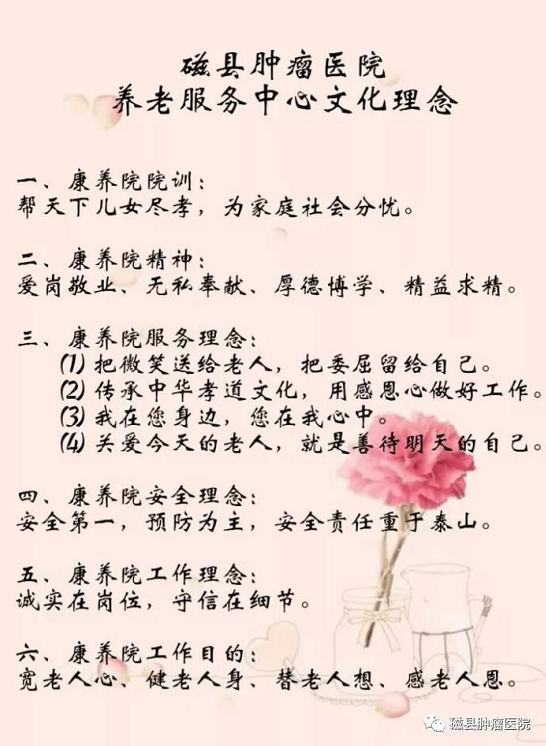 磁县肿瘤医院
养老服务中心文化理念
一、康养院院训：
帮天下儿女尽孝，为家庭社会分忧。
二、康养院精神：
爱岗敬业、无私奉献、厚德博学、精益求精。
三、康养院服务理念：
(1) 把微笑送给老人，把委屈留给自己。
(2) 传承中华孝道文化，用感恩心做好工作。
(3) 我在您身边，您在我心中。
(4) 关爱今天的老人，就是善待明天的自己。
四、康养院安全理念：
安全第一，预防为主，安全责任重于泰山。
五、康养院工作理念：
诚实在岗位，守信在细节。
六、康养院工作目的：
宽老人心、健老人身、替老人想、感老人恩。
磁县肿瘤医院